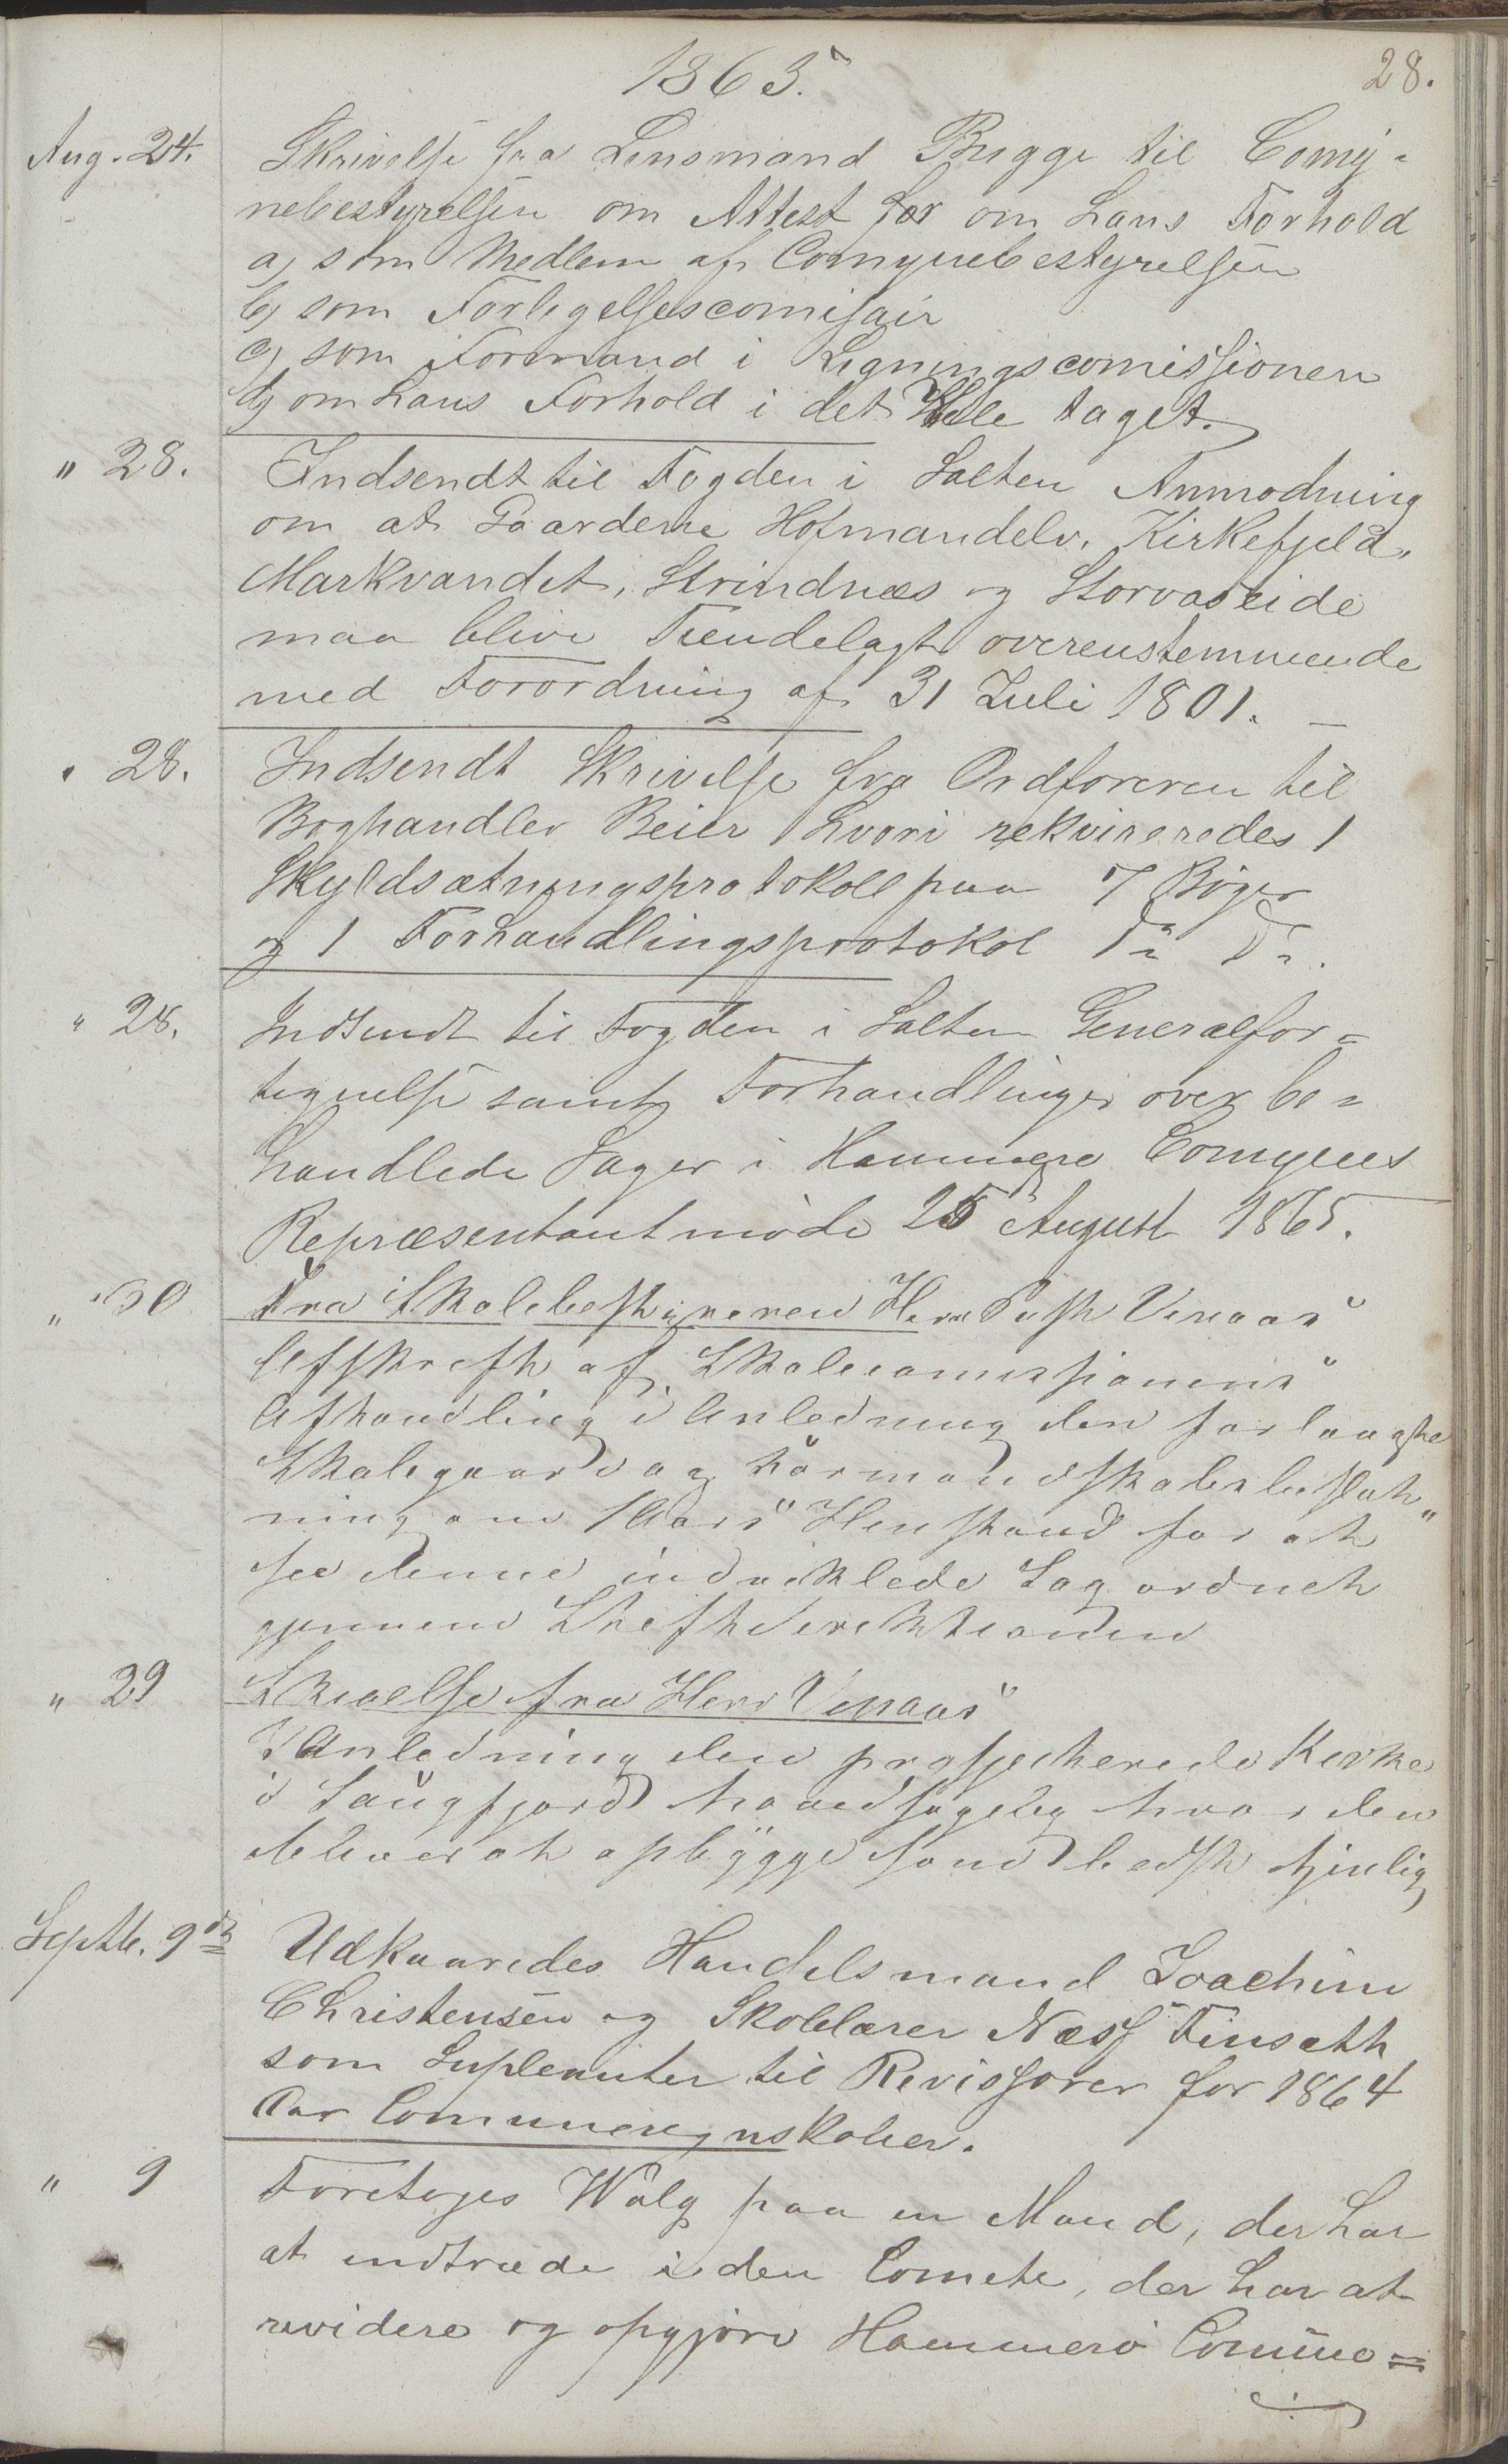 1865.
28.
Aug. 24. Skrivelse fra Lensmand Brigge til Comy-
nebestyrelsen om Attest for om Hans Forhold
a, som Medlem af Comynebestyrelsen
b, som Forligelsescomisair
c, som Formand i Ligningscomissionen
d, om Hans Forhold i det Hele taget.
" 28. Indsendt til Fogden i Salten Anmodning
om at Gaardene Hofmandelv, Kirkefjeld,
Markvandet, Strindnæs og Storvaseide
maa blive Tiendelagt overenstemmende
med Forordning af 31 Juli 1801. —
" 28. Indsendt Skrivelse fra Ordføreren til
Boghandler Beier hvori rekvireredes 1
Skyldsætningsprotokoll paa 7 Bøger
og 1 Forhandlingsprotokol do do.
" 28. Indsendt til Fogden i Salten Generalfor-
tegnelse samt Forhandlinger over be-
handlede Sager i Hammerø Comynes
Repræsentantmøde 25de August 1865.
" 30 Fra Skolebestyreren Herr Vinaas
Afskreft af Skolecomissionens
Afhandling i Anledning den forlangte
Skolegaard og Formandskabsbeslut"
ning om 1 Aars Henstand for at
see denne indviklede Sag ordnet
gjennem Stiftsderektionen
" 29 Skrivelse fra Herr Vinaas
I Anledning den prosjecterede Kirke
i Saugfjord hovedsagelig hvor den
bliver at opbygge som bedst tjenlig
Septb. 9de Udkaaredes Handelsmand Joachim
Christensen og Skolelærer Næss Finseth
som Suplenter til Revissorer for 1864
Aar Comuneregnskaber.
" 9 Foretoges Walg paa en Mand, der har
at indtræde i den Comete, der har at
revidere og opgjøre Hammerø Comune=